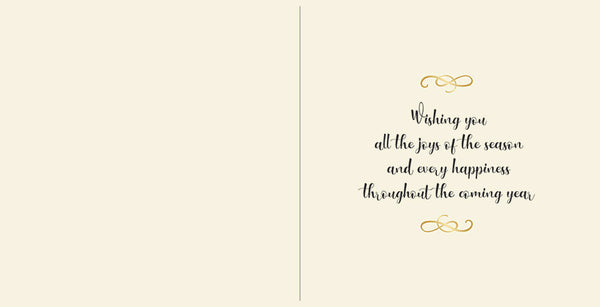 Wishing you
all the joys of the season
and every happiness
throughout the coming year